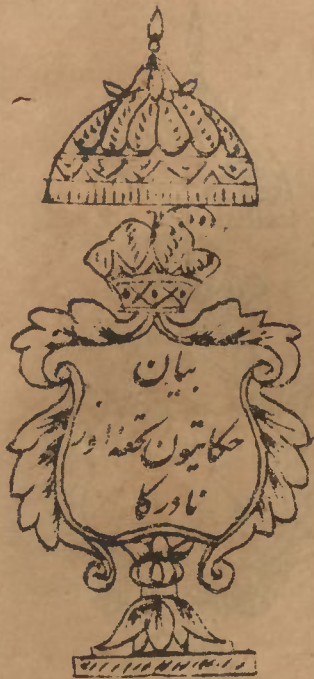 بیان
حکایتون تحفه اور
نادر کا